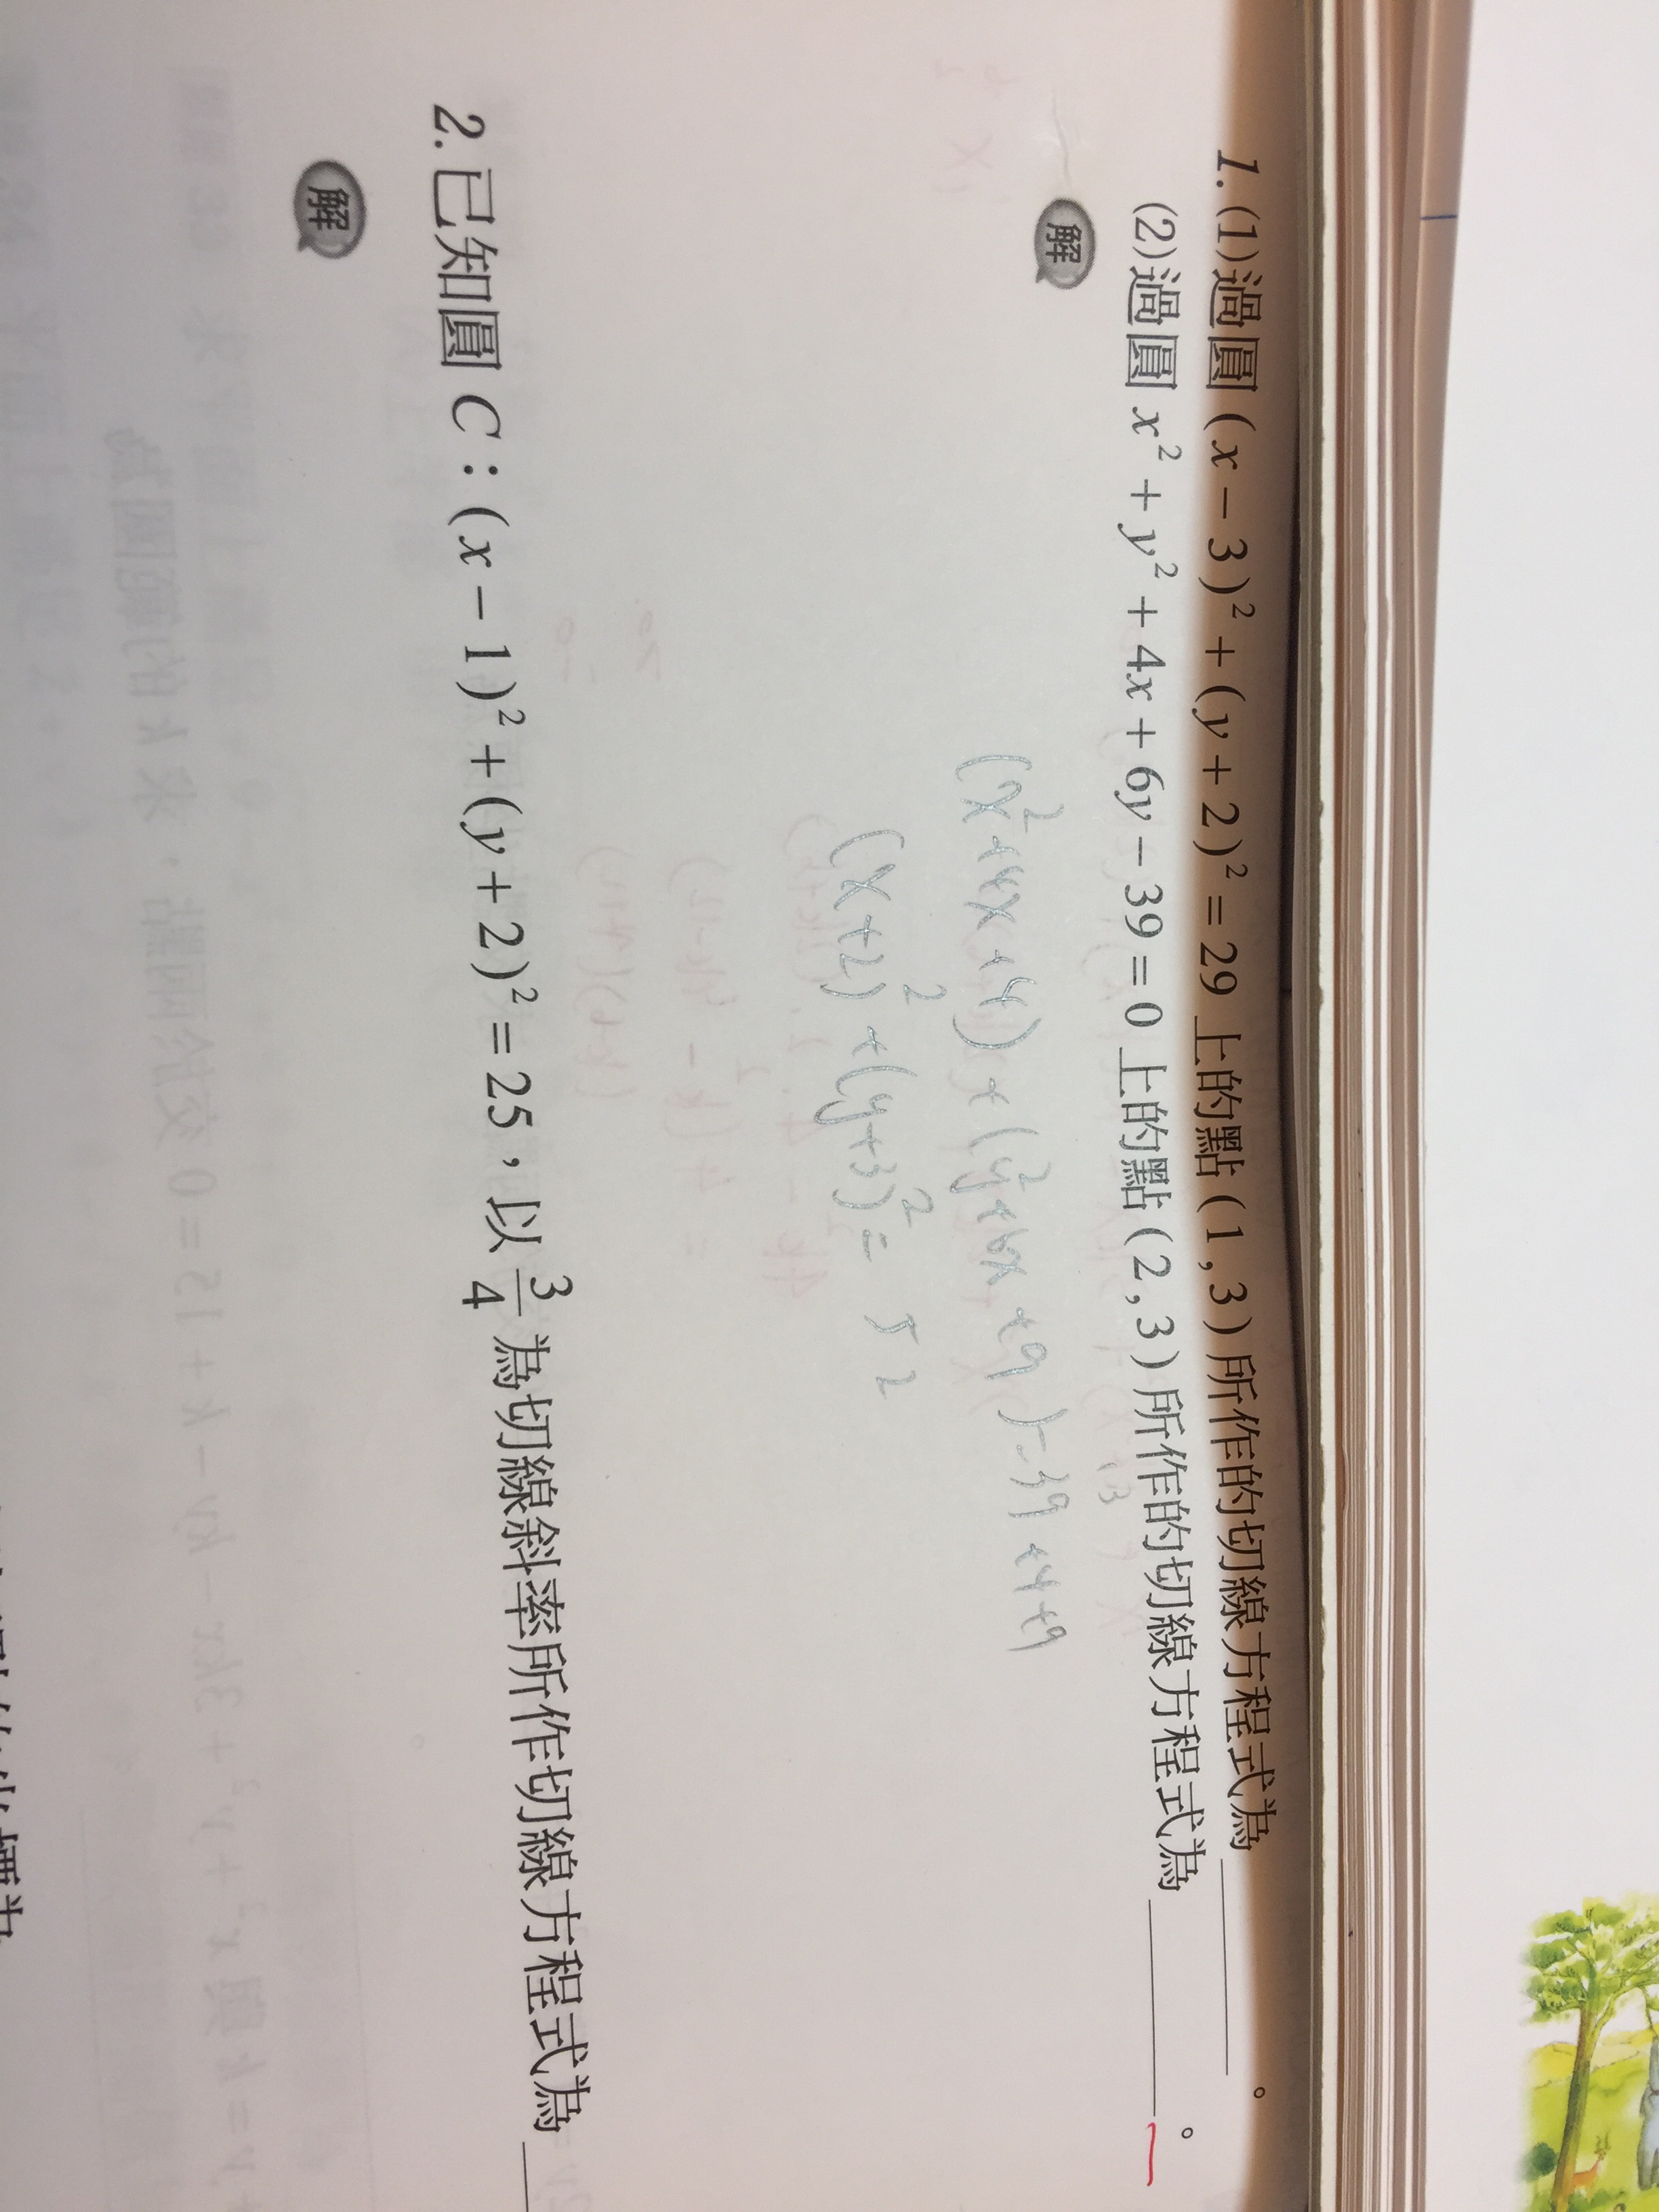 1. (1)過圓 (x－3)²＋(y＋2)²＝29 上的點 (1,3) 所作的切線方程式為＿＿＿＿。
(2)過圓 x²＋y²＋4x＋6y－39＝0 上的點 (2,3) 所作的切線方程式為＿＿＿＿。
解
(x²+4x+4)+(y²+6x+9)=39+4+9
(x+2)²+(y+3)²=52
2. 已知圓 C：(x－1)²＋(y＋2)²＝25，以 3/4 為切線斜率所作切線方程式為＿＿
解